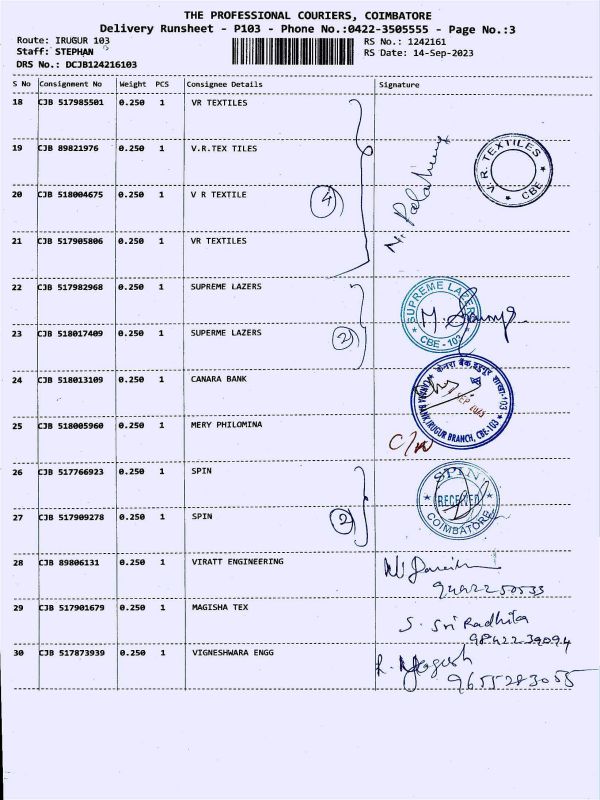 THE PROFESSIONAL COURIERS, COIMBATORE
Delivery Runsheet - P103 - Phone No.:0422-3505555 - Page No.:3
Route: IRUGUR 103 RS No.: 1242161
Staff: STEPHAN RS Date: 14-Sep-2023
DRS No.: DCJB124216103
S No Consignment No Weight PCS Consignee Details Signature
18 CJB 517985501 0.250 1 VR TEXTILES
19 CJB 89821976 0.250 1 V.R.TEX TILES
V. R. TEXTILES
* CBE *
20 CJB 518004675 0.250 1 V R TEXTILE
4
21 CJB 517905806 0.250 1 VR TEXTILES
22 CJB 517982968 0.250 1 SUPREME LAZERS
SUPREME LAZERS
* CBE - 103 *
23 CJB 518017409 0.250 1 SUPERME LAZERS
2
24 CJB 518013109 0.250 1 CANARA BANK
CANARA BANK, IRUGUR BRANCH, CBE-103
25 CJB 518005960 0.250 1 MERY PHILOMINA
26 CJB 517766923 0.250 1 SPIN
SPIN
RECEIVED
COIMBATORE
27 CJB 517909278 0.250 1 SPIN
2
28 CJB 89806131 0.250 1 VIRATT ENGINEERING
29 CJB 517901679 0.250 1 MAGISHA TEX
S. Sri Radhika
30 CJB 517873939 0.250 1 VIGNESHWARA ENGG
9655283055